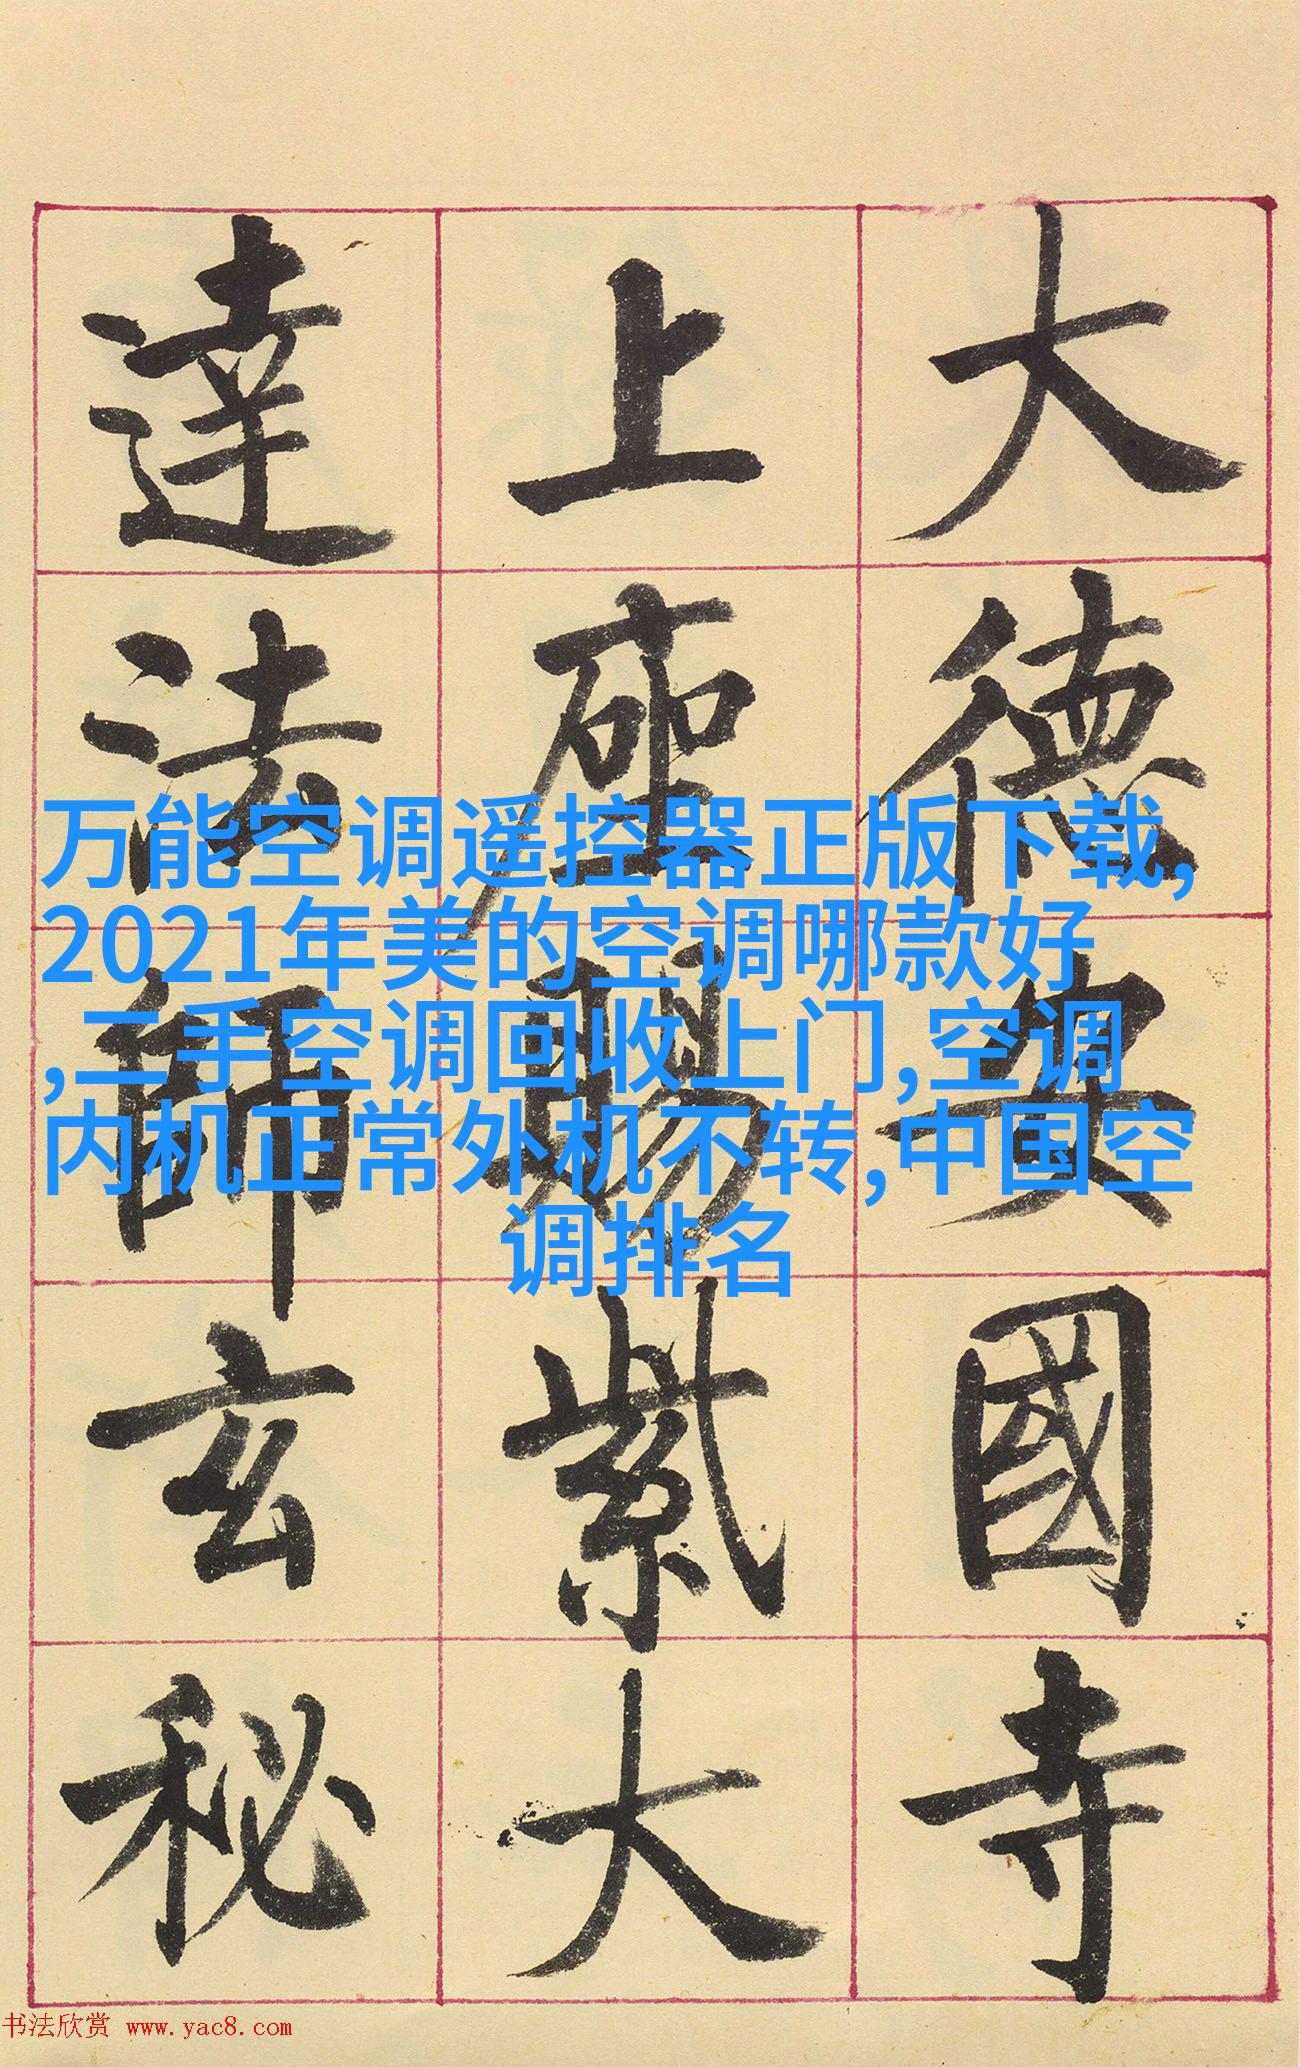 大德安國寺
上座賜紫大
達法師玄秘
万能空调遥控器正版下载,
2021年美的空调哪款好
,二手空调回收上门,空调
内机正常外机不转,中国空
调排名
书法欣赏 www.yac8.com